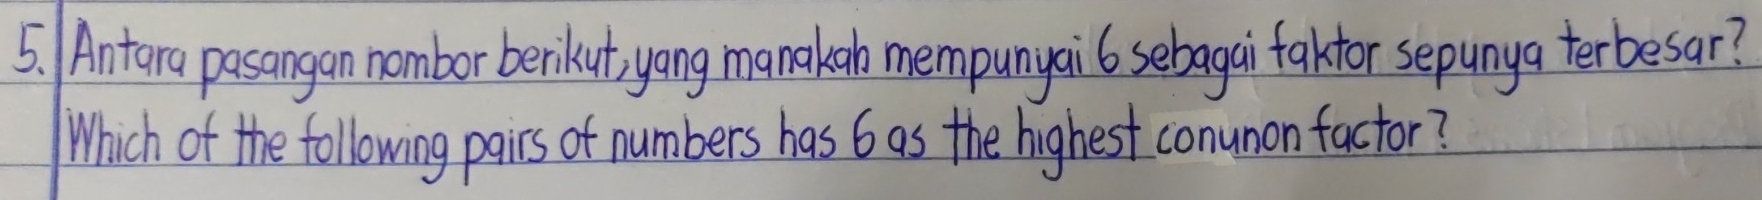 5. Antara pasangan nombor berikut, yang manakah mempunyai 6 sebagai faktor sepunya terbesar?
Which of the following pairs of numbers has 6 as the highest conunon factor?